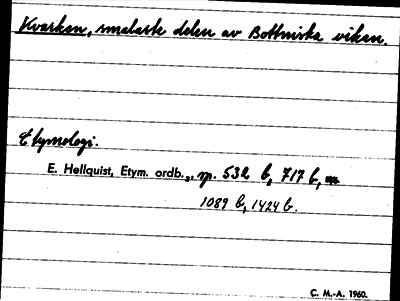 Kvarken, smalaste delen av Bottniska viken.
Etymologi.
E. Hellquist, Etym. ordb., sp. 532 b, 717 b,
1089 b, 1424 b.
C. M.-A. 1960.